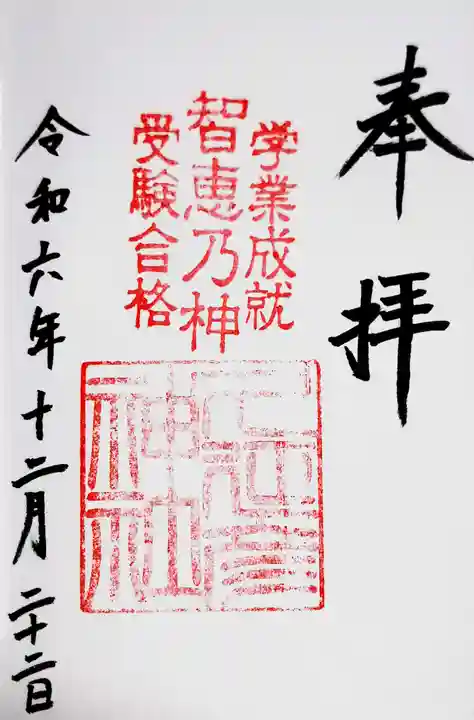 奉拝
学業成就
智恵乃神
受験合格
神社
令和六年十二月二十二日